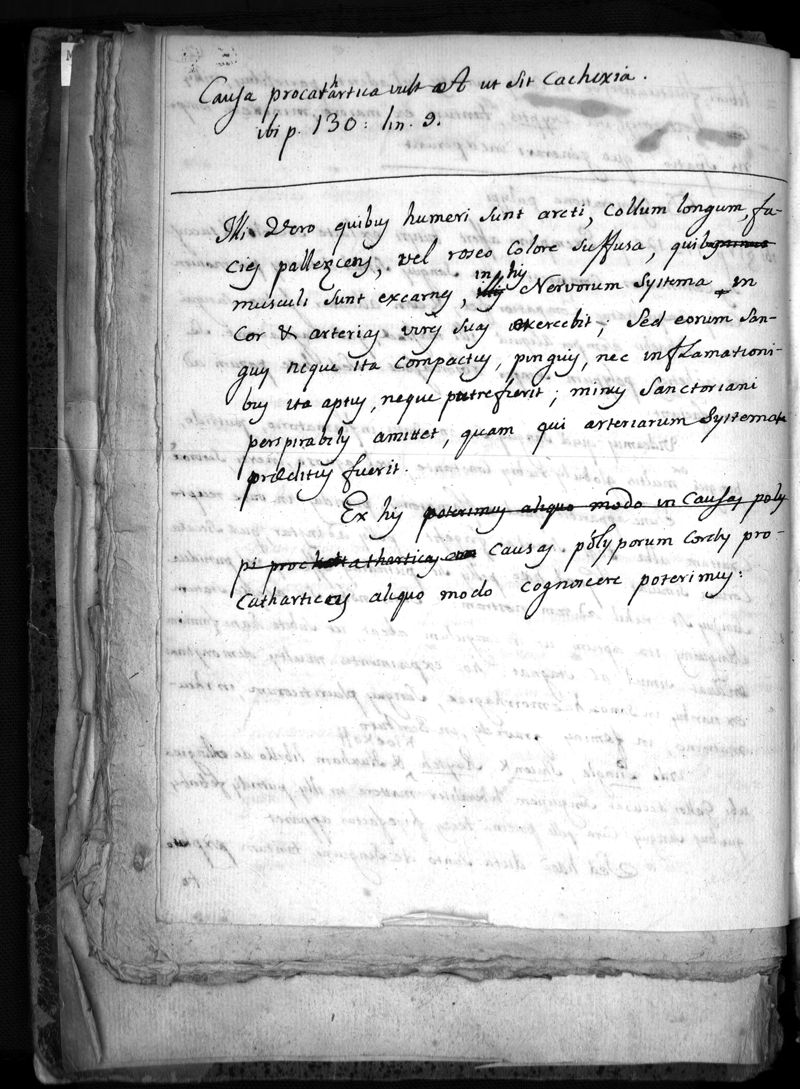 Causa procathartica vult A ut sit cachexia.
ibi p. 130: lin. 9.
Illi Vero quibus humeri sunt arcti, Collum longum, fa-
cies pallescens, vel roseo colore suffusa, quib
musculi sunt excarnes, in his Nervorum Systema in
Cor & arterias vires suas exercebit; Sed eorum San-
guis neque ita compactus, pinguis, nec inflamationi-
bus ita aptus, neque putrefierit; minus Sanctoriani
perspirabilis amittet, quam qui arteriarum Systemate
præditus fuerit.
Ex his poterimus aliquo modo in Causas poly
pi procathatharticas causas polyporum Cordis pro-
catharticas aliquo modo cognoscere poterimus: